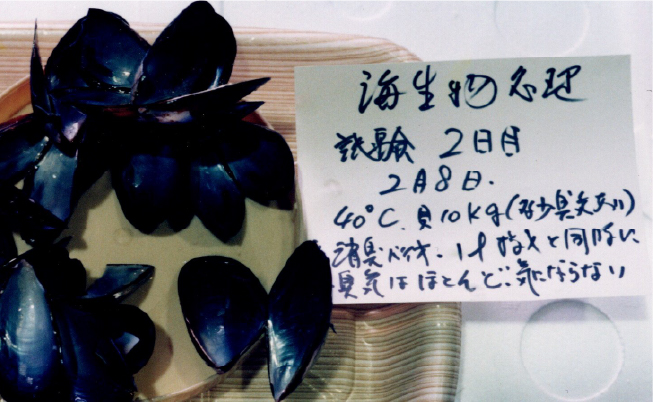 海生物処理
試験 2日目
2月8日.
40°C. 貝10kg(多少臭気あり)
消臭バイオ. 1ℓ 投入と同時に
臭気はほとんど、気にならない